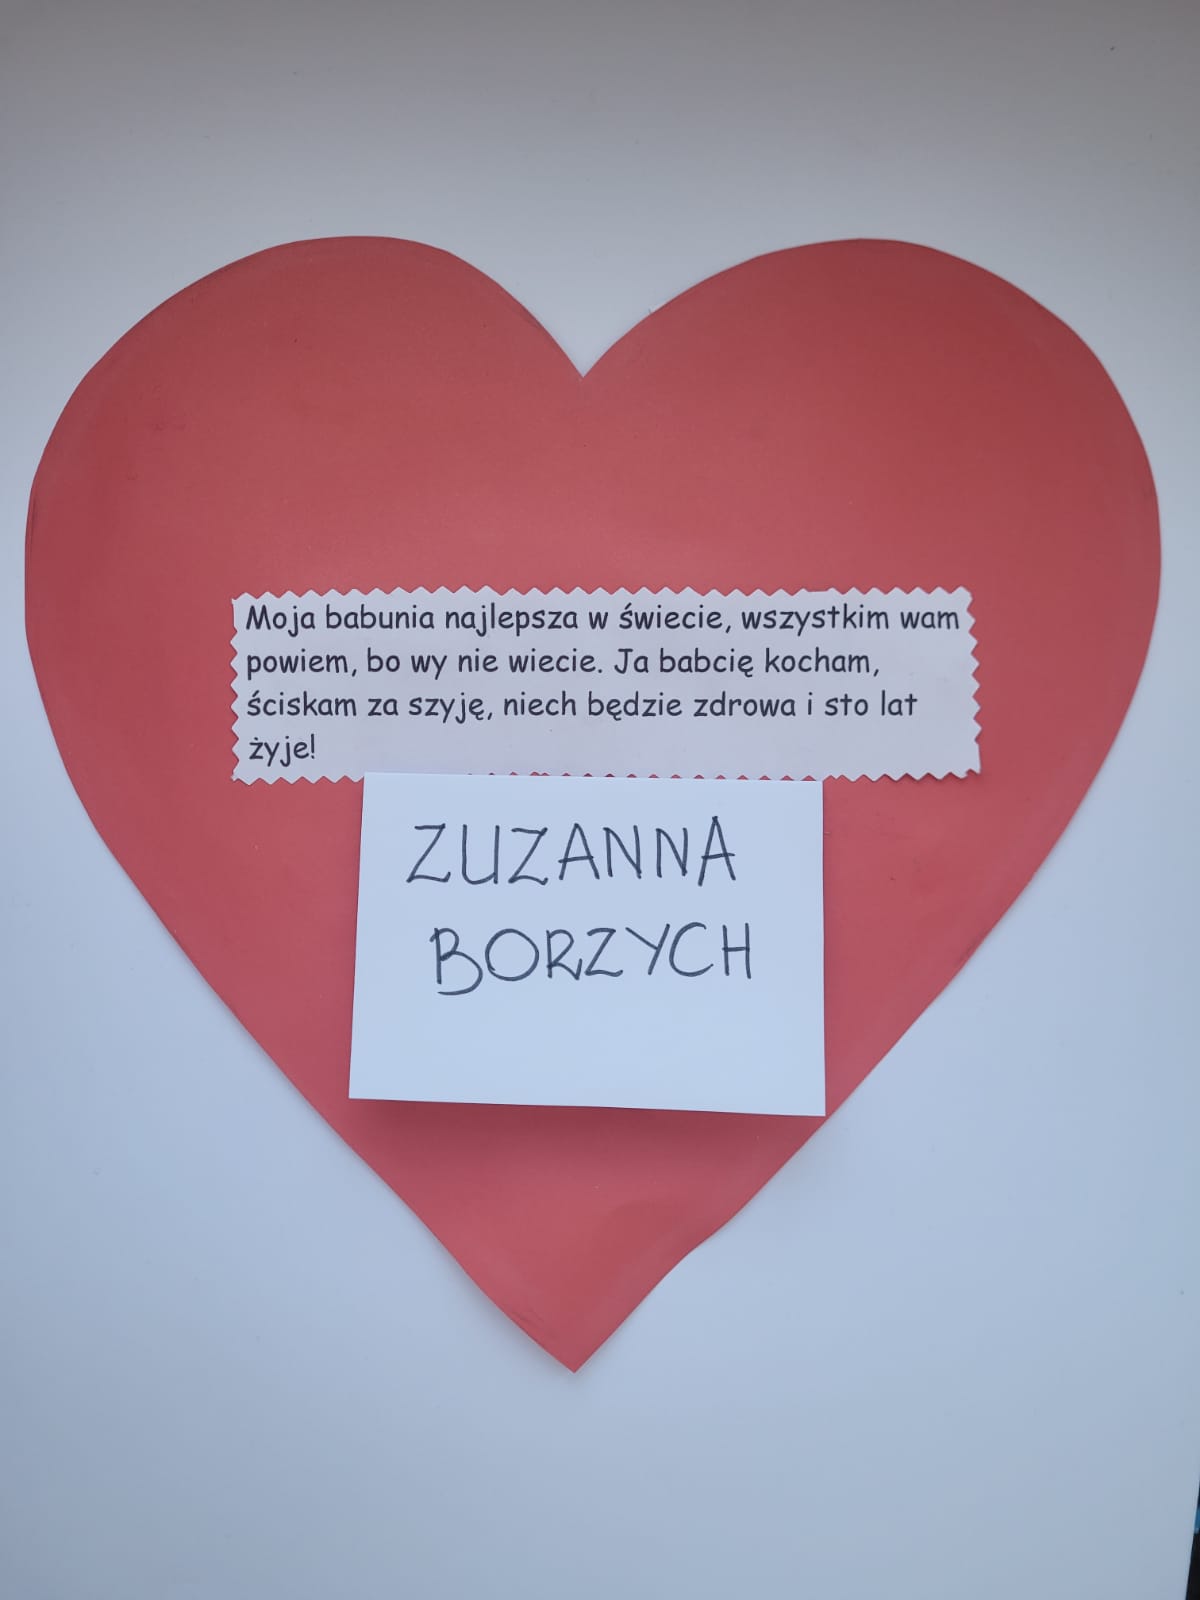 Moja babunia najlepsza w świecie, wszystkim wam
powiem, bo wy nie wiecie. Ja babcię kocham,
ściskam za szyję, niech będzie zdrowa i sto lat
żyje!
ZUZANNA
BORZYCH